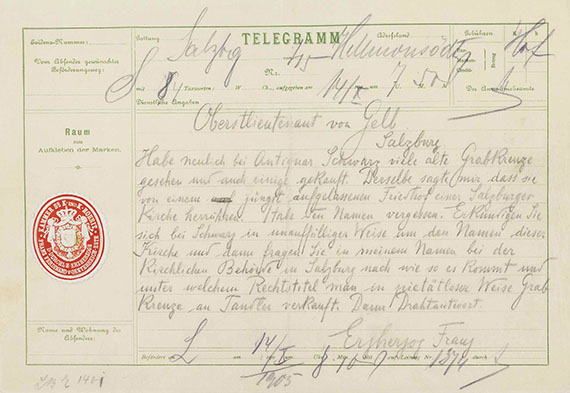 TELEGRAMM
Gattung
Salzbg
Hellmonsödt
Adreßland
Gebühren
Leitungs-Nummer:
Vom Absender gewünschte
Beförderungsweg:
Nr.
mit 84 Taxworten: W. Ch., aufgegeben am 14/X
Dienstliche Angaben
Des Annahmebeamten
Raum
zum
Aufkleben der Marken.
Oberstlieutenant von Gelb
Salzburg
Habe neulich bei Antiquar Schwarz viele alte Grabkreuze
gesehen und auch einige gekauft. Derselbe sagte mir, dass sie
von einem jüngst aufgelassenen Friedhof einer Salzburger
Kirche herrühren. Habe den Namen vergessen. Erkundigen Sie
sich bei Schwarz in unauffälliger Weise um den Namen dieser
Kirche und dann fragen Sie in meinem Namen bei der
Kirchlichen Behörde in Salzburg nach wie so es kommt und
unter welchem Rechtstitel man in pietätloser Weise Grab
Kreuze an Tandler verkauft. Dann Drahtantwort.
Erzherzog Franz
Name und Wohnung des
Absenders:
Befördert am 14/X
1905
Nr. 1374 durch